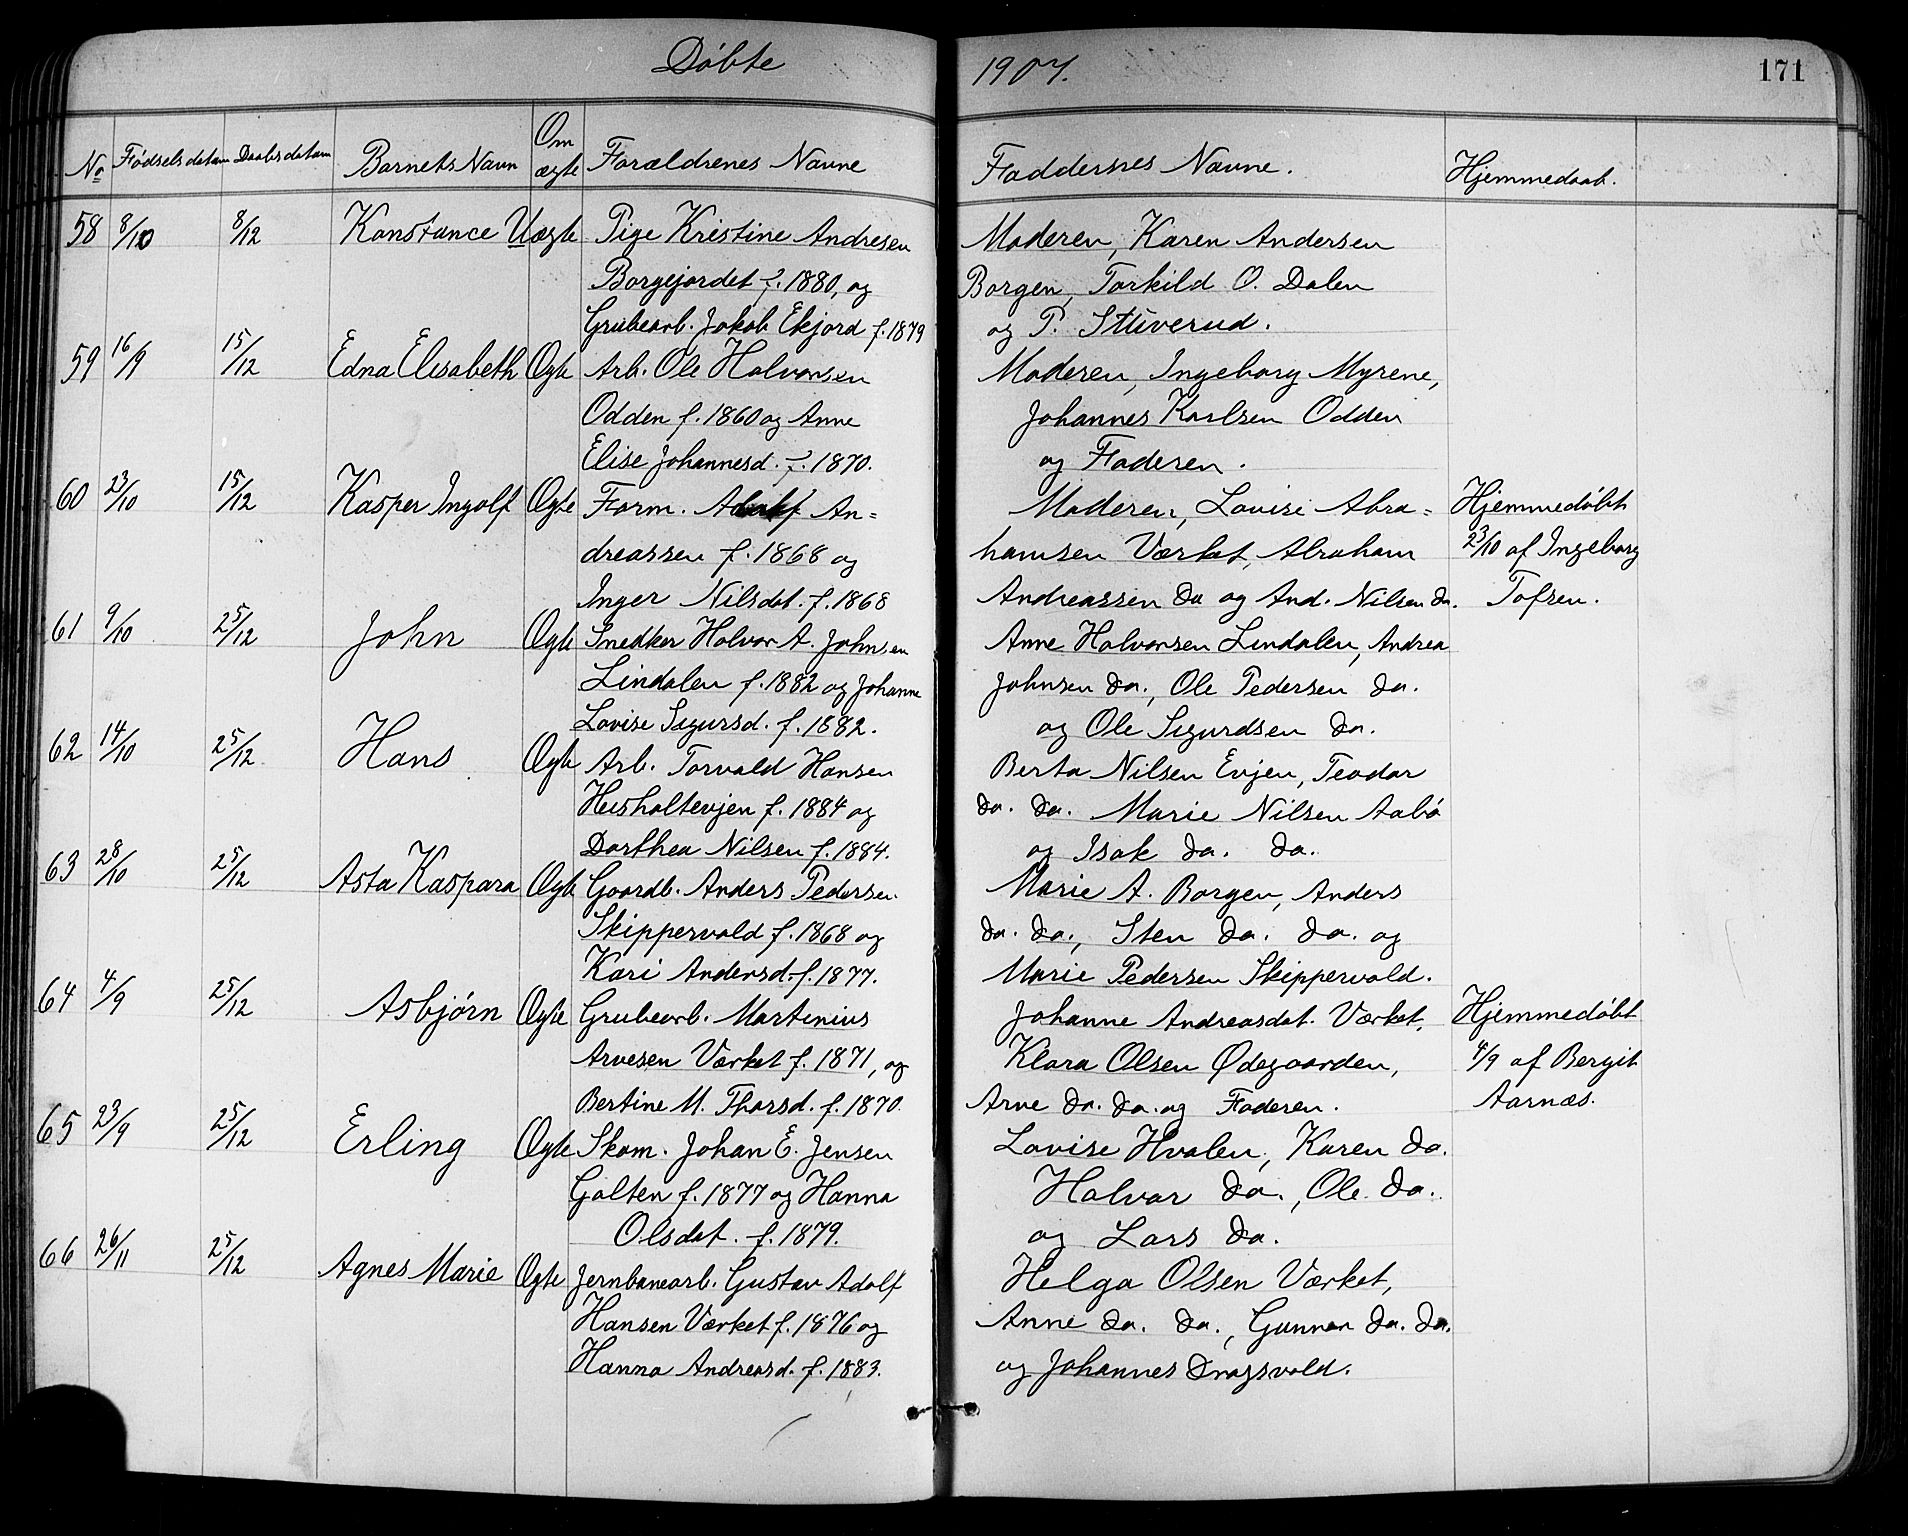 Døbte 1907. 171
No Fødselsdatum Daabsdatum Barnets Navn Om ægte Forældrenes Navne Faddernes Navne. Hjemmedaab.
58 8/10 8/12 Konstance Uægte Pige Kristine Andresen
Borgejordet f. 1880, og
Grubearb. Jakob Ekjord f. 1879
Moderen, Karen Andersen
Borgen, Torkild O. Dalen
og P. Stuverud.
59 16/9 15/12 Edna Elisabeth Ægte Arb. Ole Halvorsen
Odden f. 1860 og Anne
Elise Johannesd. f. 1870.
Moderen, Ingeborg Myrene,
Johannes Karlsen Odden
og Faderen.
60 23/10 15/12 Kasper Ingolf Ægte Form. Adolf An=
dreassen f. 1868 og
Inger Nilsdat. f. 1868
Moderen, Lovise Abra=
hamsen Værket, Abraham
Andreassen do og And. Nilsen do.
Hjemmedøbt
23/10 af Ingeborg
Tofsen.
61 9/10 25/12 John Ægte Snedker Halvor A. Johnsen
Lindalen f. 1882 og Johanne
Lovise Sigursd. f. 1882.
Anne Halvorsen Lindalen, Andrea
Johnsen do., Ole Pedersen do.
og Ole Sigurdsen do.
62 14/10 25/12 Hans Ægte Arb. Torvald Hansen
Husholtevjen f. 1884 og
Dorthea Nilsen f. 1884.
Berta Nilsen Evjen, Teodor
do. do. Marie Nilsen Aabø
og Isak do. do.
63 28/10 25/12 Asta Kaspara Ægte Gaardb. Anders Pedersen
Skippervold f. 1868 og
Kari Andersd. f. 1877.
Marie A. Borgen, Anders
do. do., Sten do. do. og
Marie Pedersen Skippervold.
64 4/9 25/12 Asbjørn Ægte Grubearb. Martinius
Arvesen Værket f. 1871, og
Bertine M. Thorsd. f. 1870.
Johanne Andreasdat. Værket,
Klara Olsen Ødegaarden,
Arne do. do. og Faderen.
Hjemmedøbt
4/9 af Bergit
Aarnæs.
65 23/9 25/12 Erling Ægte Skom. Johan E. Jensen
Galten f. 1877 og Hanna
Olsdat. f. 1879.
Lovise Hvalen, Karen do.
Halvor do., Ole do.
og Lars do.
66 26/11 25/12 Agnes Marie Ægte Jernbanearb. Gustav Adolf
Hansen Værket f. 1876 og
Hanna Andreasd. f. 1883.
Helga Olsen Værket,
Anne do. do., Gunnar do. do.
og Johannes Dragsvold.